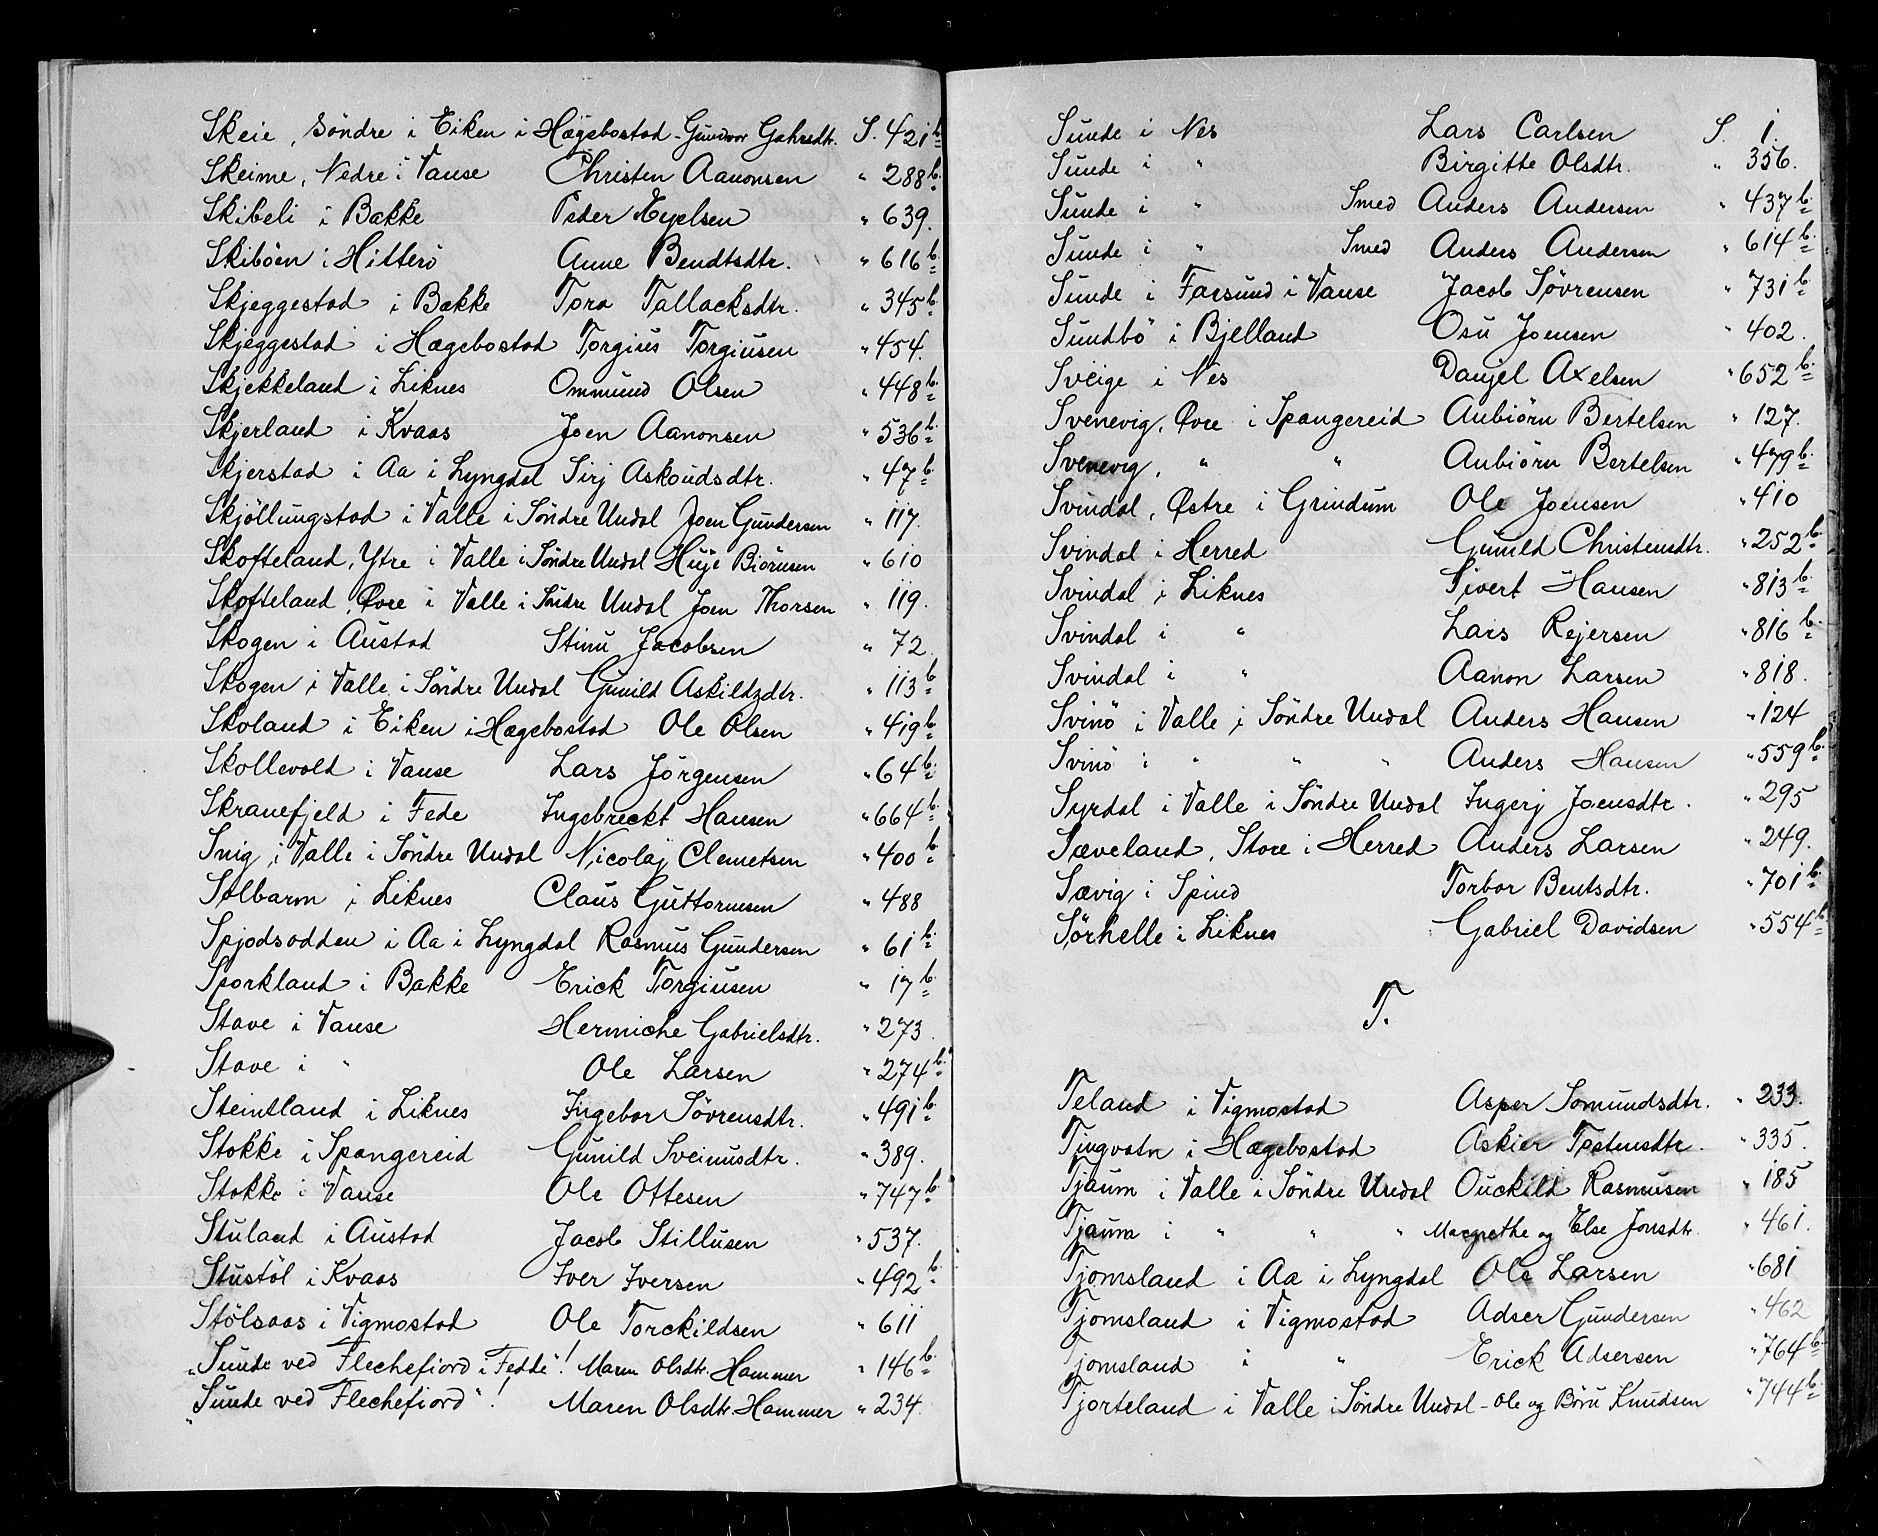 Skeie, Söndre i Eiken i Hægebostad - Gunvor Gahrsdtr. S. 421 b.
Skeime, Nedre i Vanse Christen Aanonsen " 288 b.
Skibeli i Bakke Peder Eyelsen " 639.
Skiböen i Hitterö Anne Bendtsdtr. " 616 b.
Skjeggestad i Bakke Tora Tallacksdtr. " 345 b.
Skjeggestad i Hægebostad Torgius Torgiusen " 454.
Skjekkeland i Liknes Ommund Olsen " 448 b.
Skjerland i Kvaas Joen Aanonsen " 536 b.
Skjerstad i Aa i Lyngdal Sirj Askoudsdtr. " 47 b.
Skjöllingstad i Valle i Söndre Undal Joen Gundersen " 117.
Skofteland, Ytre i Valle i Söndre Undal Huje Biörnsen " 610
Skofteland, Øvre i Valle i Söndre Undal Joen Thorsen " 119.
Skogen i Austad Stinu Jacobsen " 72.
Skogen i Valle i Söndre Undal Gunild Askildzdtr. " 113 b.
Skoland i Eiken i Hægebostad Ole Olsen " 419 b.
Skollevold i Vanse Lars Jörgensen " 64 b.
Skranefjeld i Fede Ingebreckt Hansen " 664 b.
Snig i Valle i Söndre Undal Nicolaj Clemetsen " 400 b.
Solbarm i Liknes Claus Guttormsen " 488
Spjodsodden i Aa i Lyngdal Rasmus Gundersen " 61 b.
Sporkland i Bakke Erick Torgiusen " 17 b.
Stave i Vanse Hermiche Gabrielsdtr. " 273.
Stave i " Ole Larsen " 274 b.
Steintland i Liknes Ingebor Sövrensdtr. " 491 b.
Stokke i Spangereid Gunild Sveinusdtr. " 389.
Stokke i Vanse Ole Ottesen " 747 b.
Stuland i Austad Jacob Stillusen " 537.
Stustöl i Kvaas Iver Iversen " 492 b.
Stölsaas i Vigmostad Ole Torckildsen " 611
"Sunde ved Flechefiord i Fedde"! Maren Olsdtr. Hammer " 146 b.
"Sunde ved Flechefiord"! Maren Olsdtr. Hammer " 234.
Sunde i Nes Lars Carlsen S. 1.
Sunde i " Birgitte Olsdtr. " 356.
Sunde i " Smed Anders Andersen " 437 b.
Sunde i " Smed Anders Andersen " 614 b.
Sunde i Farsund i Vanse Jacob Sövrensen " 731 b.
Sundbö i Bjelland Osu Joensen " 402.
Sveige i Nes Danjel Axelsen " 652 b.
Svenevig, Øvre i Spangereid Anbiörn Bertelsen " 127.
Svenevig, " " Anbiörn Bertelsen " 479 b.
Svindal, Østre i Grindum Ole Joensen " 410
Svindal i Herred Gunild Christensdtr. " 252 b.
Svindal i Liknes Sivert Hansen " 813 b.
Svindal i " Lars Rejersen " 816 b.
Svindal i " Aanon Larsen " 818.
Svinö i Valle i Söndre Undal Anders Hansen " 124
Svinö i " " " Anders Hansen " 559 b.
Syrdal i Valle i Söndre Undal Ingerj Joensdtr. " 295
Sæveland, Store i Herred Anders Larsen " 249.
Sævig i Spind Torbor Bentsdtr. " 701 b.
Sörhelle i Liknes Gabriel Davidsen " 554 b.
T.
Teland i Vigmostad Asper Somundsdtr. " 233.
Tingvatn i Hægebostad Askier Tostensdtr. " 335.
Tjaum i Valle i Söndre Undal Ouckild Rasmusen " 185
Tjaum i " " " Margrethe og Else Jonsdtr. " 461.
Tjomsland i Aa i Lyngdal Ole Larsen " 681
Tjomsland i Vigmostad Adser Gundersen " 462
Tjomsland i " Erick Adsersen " 764 b.
Tjorteland i Valle i Söndre Undal - Ole og Börn Knudsen " 744 b.